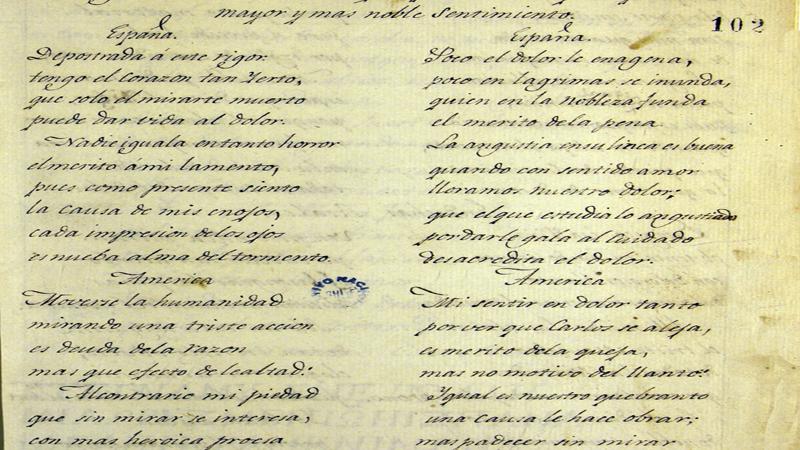 mayor y mas noble Sentimiento.
102
España.
Depostrada á este rigor
tengo el Corazon tan Yerto,
que solo el mirarte muerto
puede dar vida al dolor.
Nadie iguala entanto horror
elmerito ámi lamento,
pues como presente siento
la causa de mis enojos,
cada impresion delos ojos
es nueba alma del tormento.
America
Moverse la humanidad
mirando una triste accion
es deuda dela razon
mas que efecto de lealtad:
Alcontrario mi piedad
que sin mirar se interesa,
con mas heroica
España.
Poco el dolor le enagena,
poco en lagrimas se inunda,
quien en la nobleza funda
el merito dela pena.
La angustia ensu linea es buena
quando con sentido amor
lloramos nuestro dolor;
que elque estudia lo angustiado
por darle gala al Cuidado
desacredita el dolor.
America
Mi sentir en dolor tanto
por ver que Carlos se aleja,
es merito dela queja,
mas no motivo del llanto:
Ygual es nuestro quebranto
una Causa le hace obrar;
mas padecer sin mirar